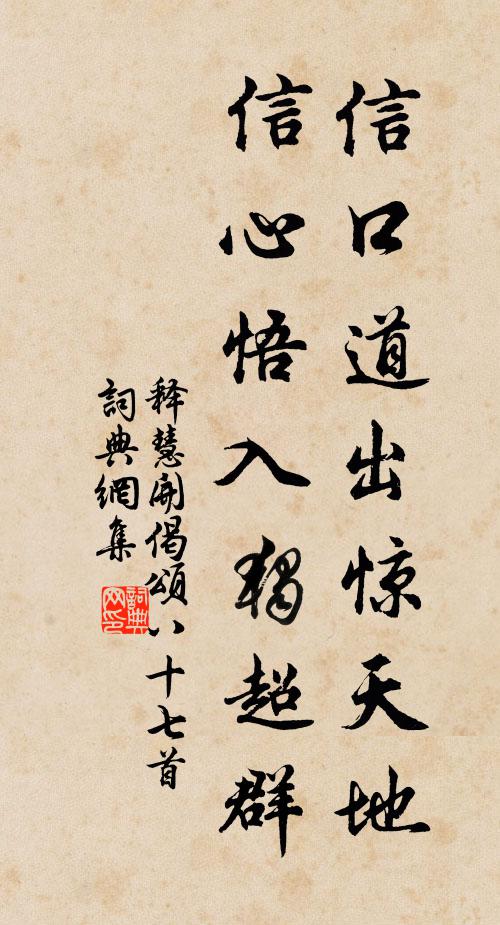 信口道出惊天地
信心悟入獨超群
释慧開偈頌八十七首
詞典網集
詞典网印